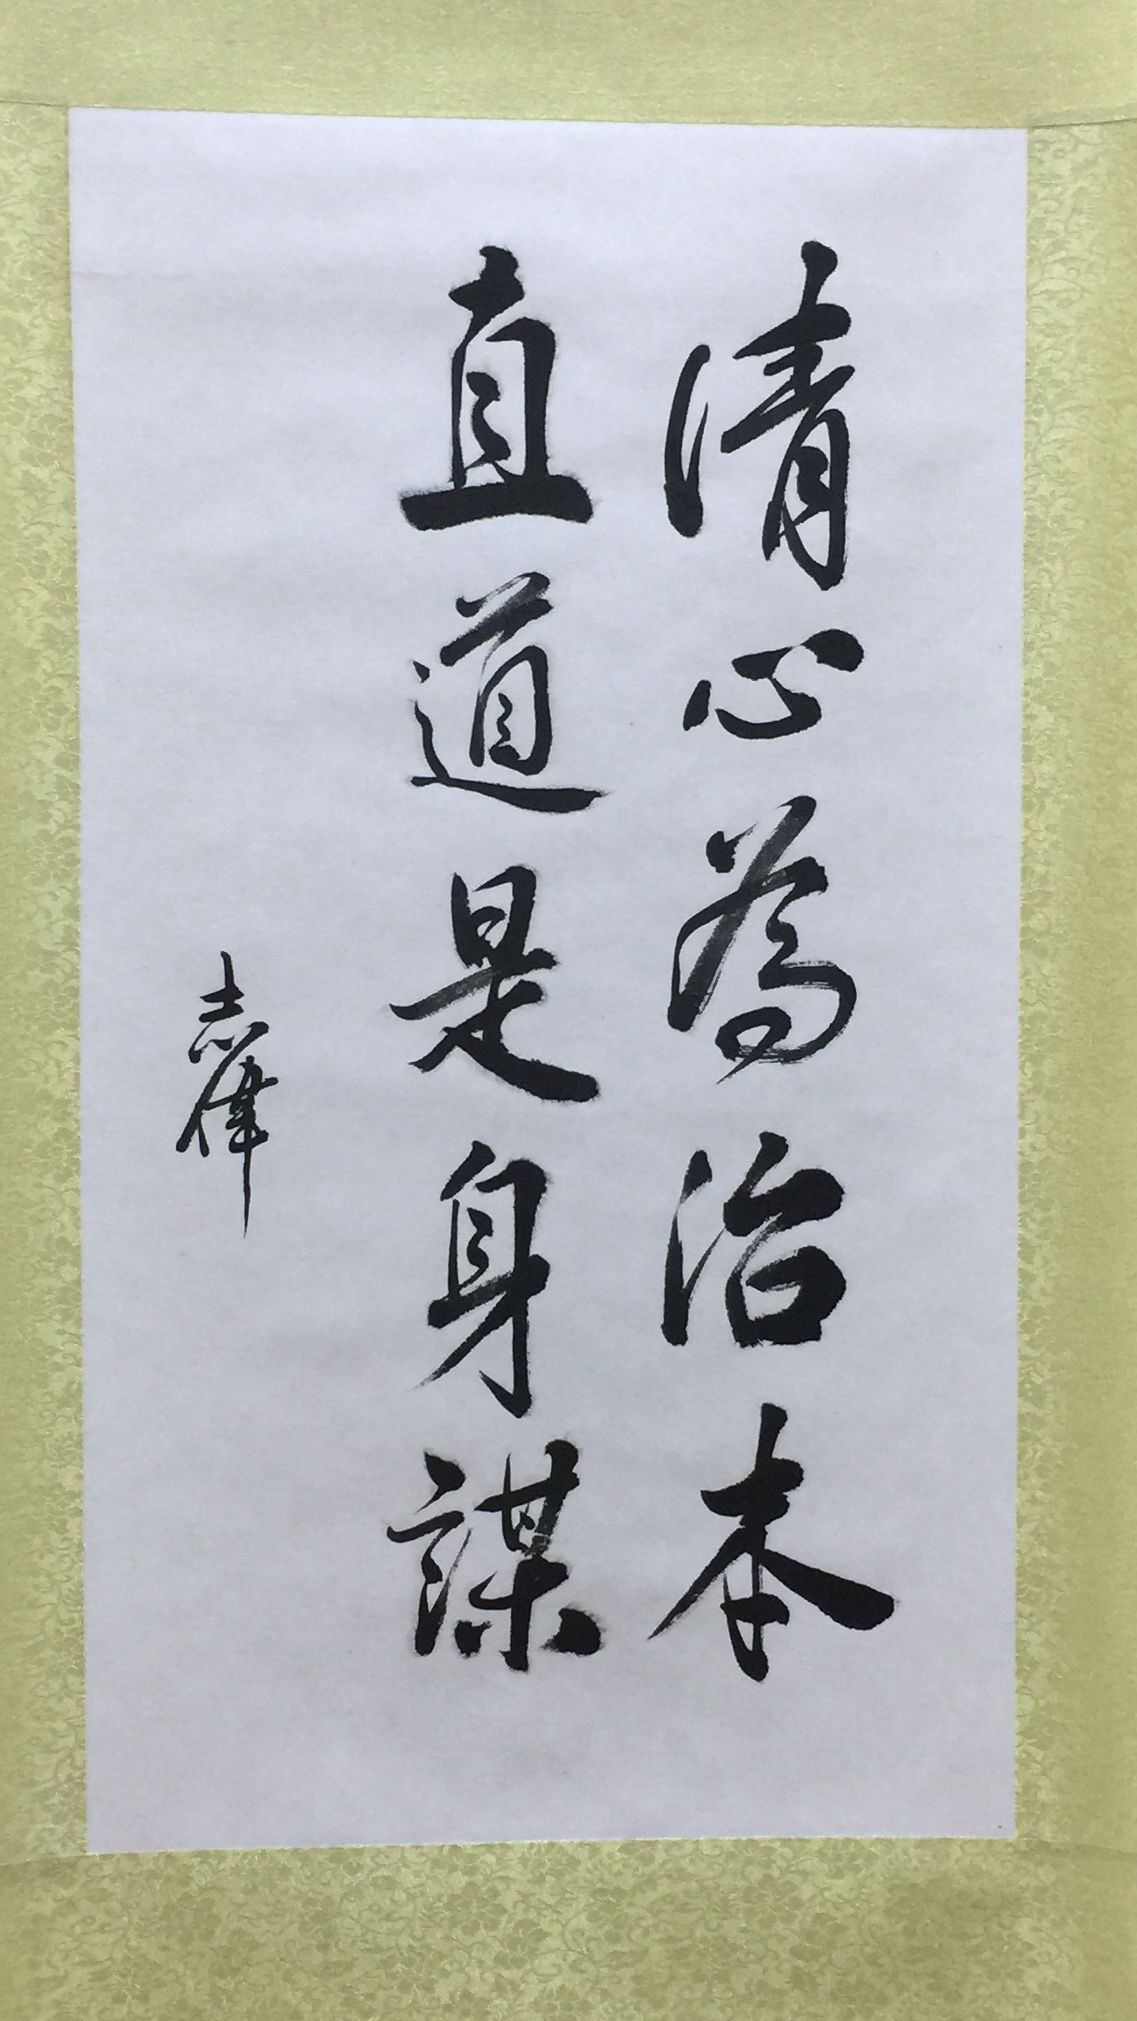 清心為治本
直道是身謀
志偉